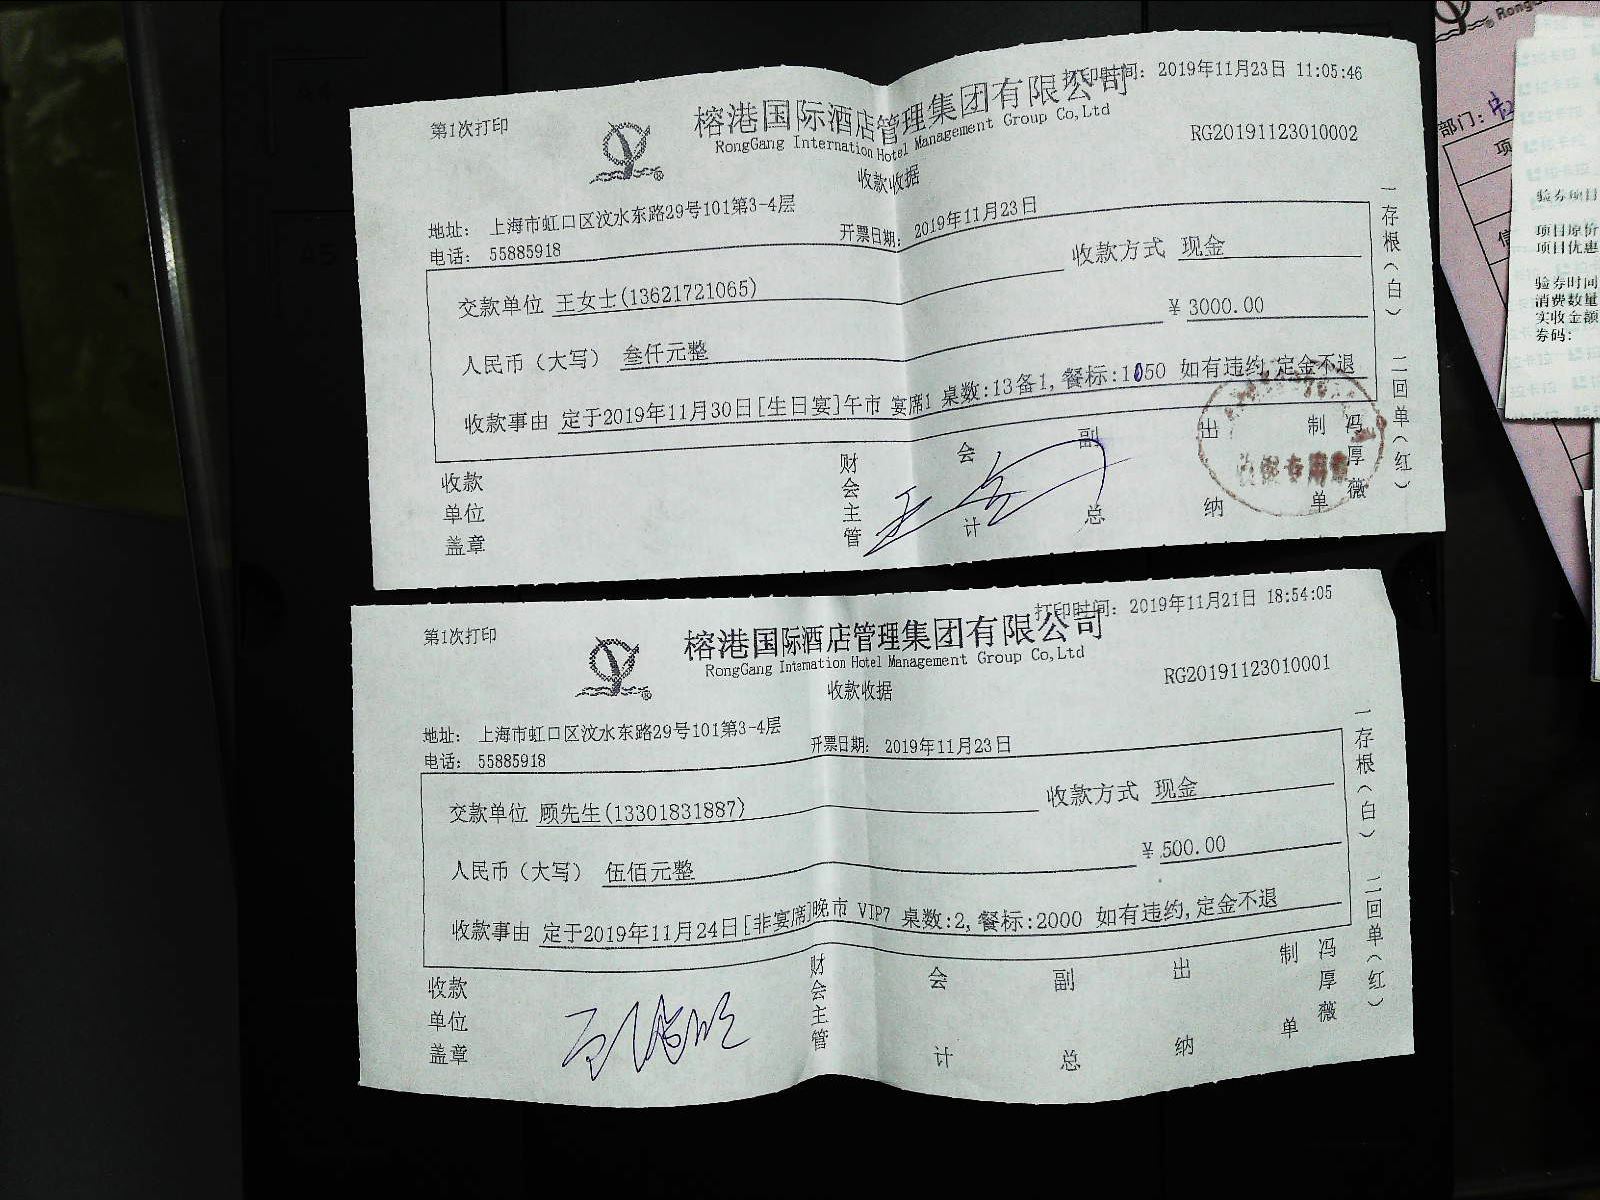 第1次打印
打印时间: 2019年11月23日 11:05:46
榕港国际酒店管理集团有限公司
RongGang Internation Hotel Management Group Co,Ltd
RG20191123010002
收款收据
地址: 上海市虹口区汶水东路29号101第3-4层
电话: 55885918
开票日期: 2019年11月23日
交款单位 王女士(13621721065)
收款方式 现金
人民币（大写） 叁仟元整
¥ 3000.00
收款事由 定于2019年11月30日[生日宴]午市 宴席1 桌数:13备1,餐标:1050 如有违约,定金不退
收款单位盖章
财会主管
会计
副总
出纳
制单
冯厚薇
一存根（白） 二回单（红）
第1次打印
打印时间: 2019年11月21日 18:54:05
榕港国际酒店管理集团有限公司
RongGang Intemation Hotel Management Group Co,Ltd
RG20191123010001
收款收据
地址: 上海市虹口区汶水东路29号101第3-4层
电话: 55885918
开票日期: 2019年11月23日
交款单位 顾先生(13301831887)
收款方式 现金
人民币（大写） 伍佰元整
¥ 500.00
收款事由 定于2019年11月24日[非宴席]晚市 VIP7 桌数:2,餐标:2000 如有违约,定金不退
收款单位盖章
财会主管
会计
副总
出纳
制单
冯厚薇
一存根（白） 二回单（红）
部门:
验券项目
项目原价
项目优惠
验券时间
消费数量
实收金额
券码:
A4
A5